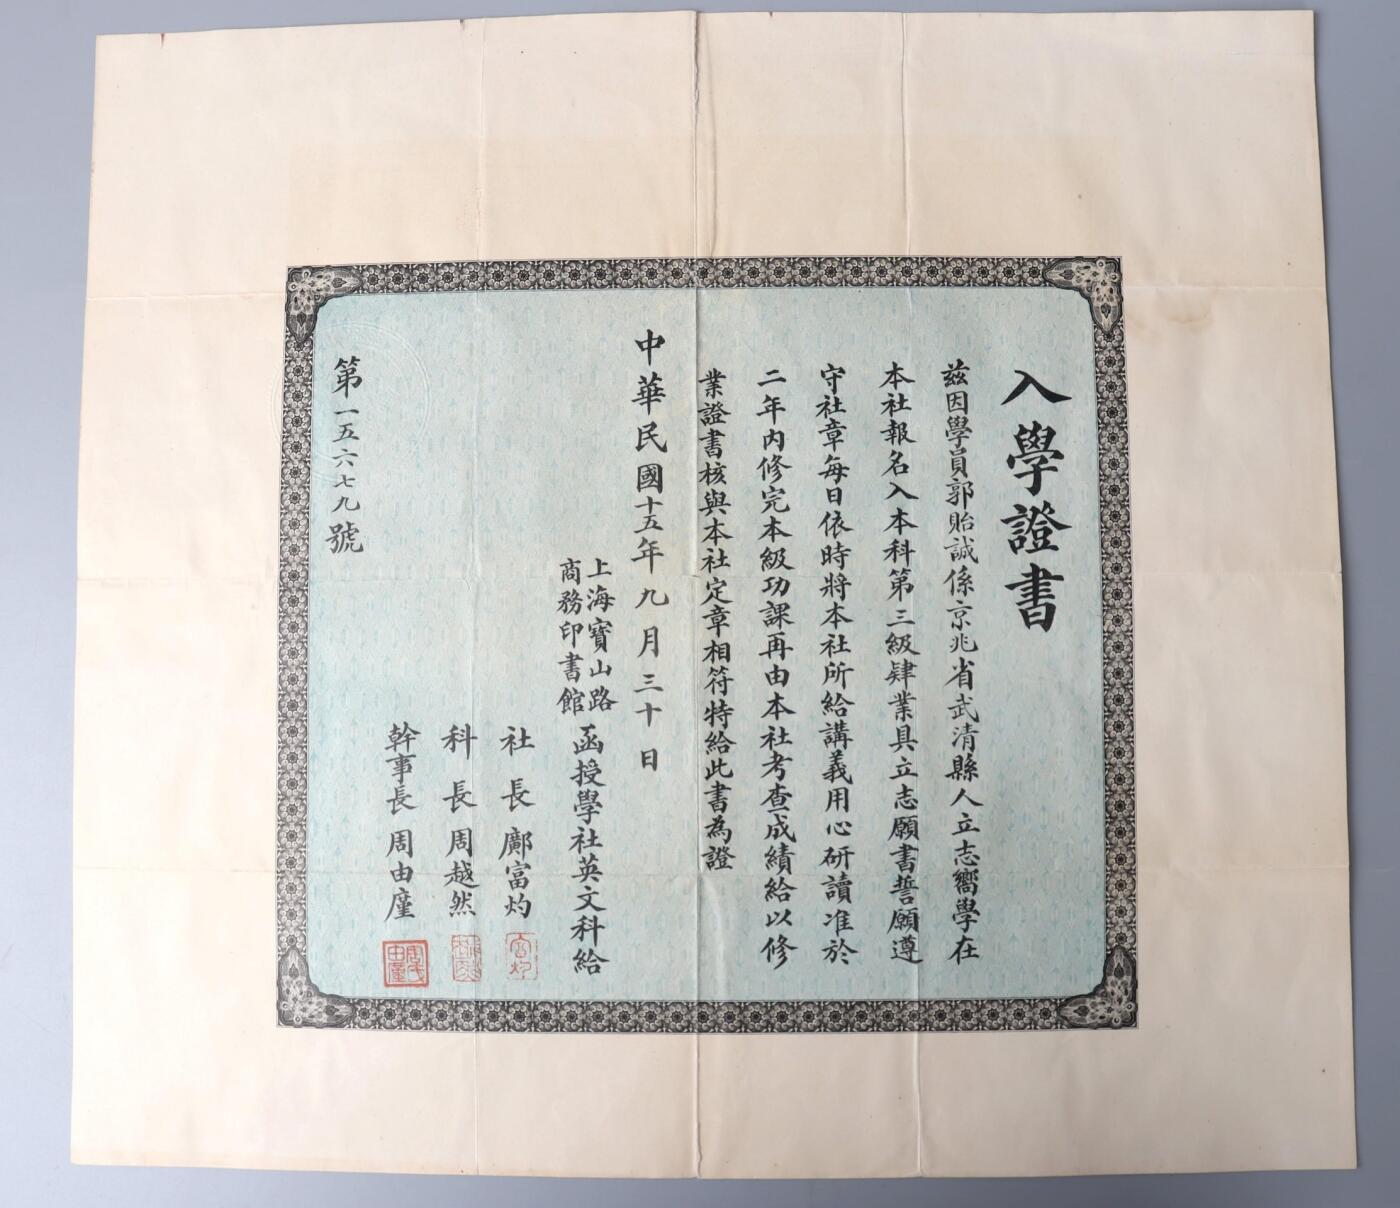 入學證書
茲因學員郭貽誠係京兆省武清縣人立志嚮學在
本社報名入本科第三級肄業具立志願書誓願遵
守社章每日依時將本社所給講義用心研讀准於
二年內修完本級功課再由本社考查成績給以修
業證書核與本社定章相符特給此書為證
中華民國十五年九月三十日
上海寶山路
商務印書館
函授學社英文科給
社長鄺富灼
富灼
科長周越然
幹事長周由廑
周氏由廑
第一五六七九號